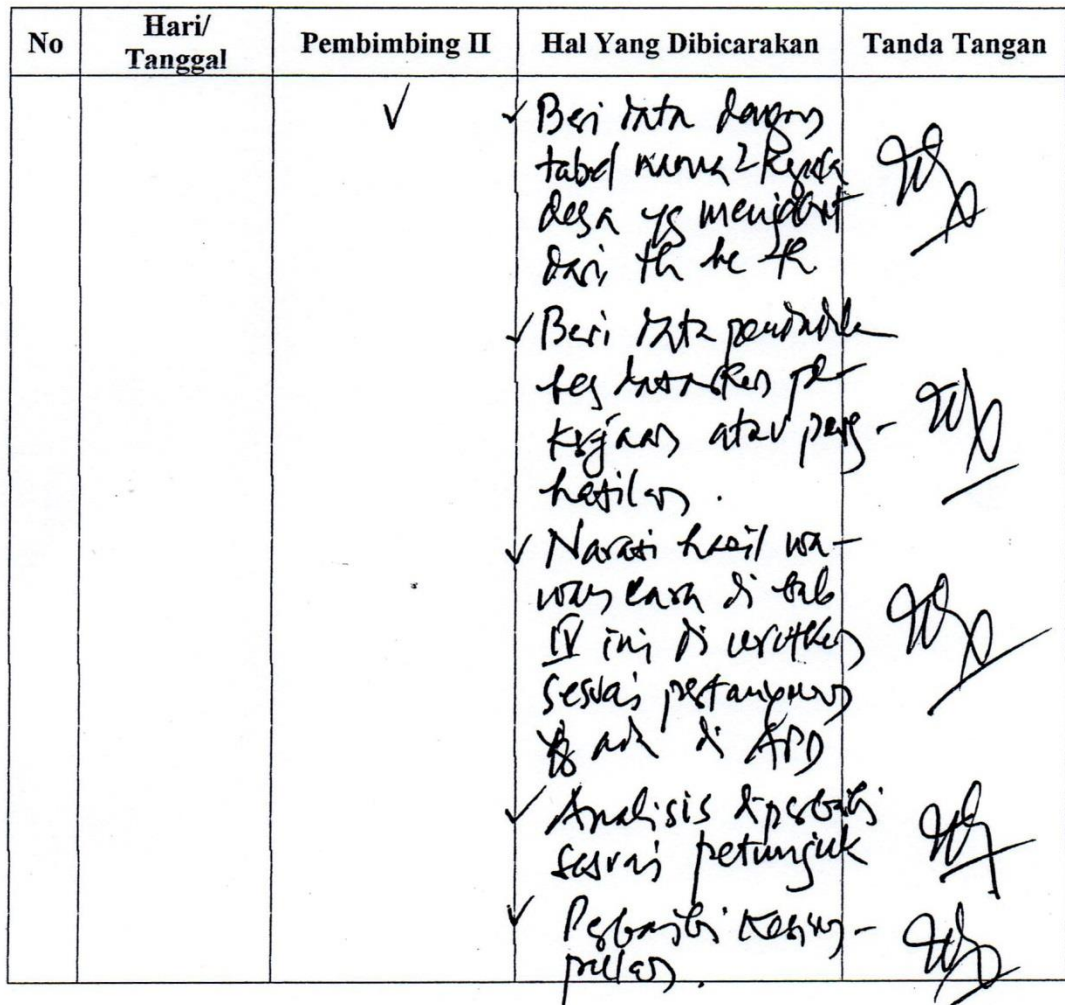 No
Hari/
Tanggal
Pembimbing II
Hal Yang Dibicarakan
Tanda Tangan
Beri data dengan
tabel nama2 Kepala
desa yg menjabat
dari th ke th
Beri data penduduk
berdasarkan pe-
kerjaan atau peng-
hasilan.
Narasi hasil wa-
wancara di bab
IV ini di urutkan
sesuai pertanyaan
yg ada di APD
Analisis diperbaiki
sesuai petunjuk
Perbaiki Kesim-
pulan.